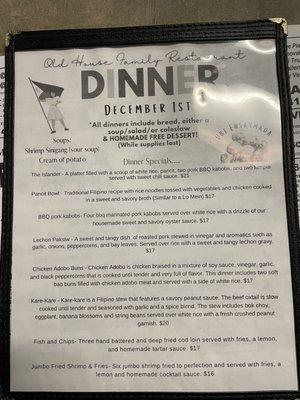 Old House Family Restaurant
DINNER
DECEMBER 1ST
*All dinners include bread, either a
soup/salad/or coleslaw
& HOMEMADE FREE DESSERT!
(While supplies last)
Soups:
Shrimp Sinigang (sour soup)
Cream of potato
Dinner Specials....
The Islander - A platter filled with a scoop of white rice, pancit, two pork BBQ kabobs, and two lumpia
served with sweet chili sauce. $21
Pancit Bowl - Traditional Filipino recipe with rice noodles tossed with vegetables and chicken cooked
in a sweet and savory broth (Similar to a Lo Mein) $17
BBQ pork kabobs- Four bbq marinated pork kabobs served over white rice with a drizzle of our
housemade sweet and savory oyster sauce. $17
Lechon Paksiw - A sweet and tangy dish of roasted pork stewed in vinegar and aromatics such as
garlic, onions, peppercorns, and bay leaves. Served over rice with a sweet and tangy lechon gravy.
$17
Chicken Adobo Buns - Chicken Adobo is chicken braised in a mixture of soy sauce, vinegar, garlic,
and black peppercorns that is cooked until tender and very full of flavor. This dinner includes two soft
bao buns filled with chicken adobo meat and served with a side of white rice. $17
Kare-Kare - Kare-kare is a Filipino stew that features a savory peanut sauce. The beef oxtail is slow
cooked until tender and seasoned with garlic and a spice blend. The stew includes bok choy,
eggplant, banana blossoms and string beans served over white rice with a fresh crushed peanut
garnish. $20
Fish and Chips- Three hand battered and deep fried cod loin served with fries, a lemon,
and homemade tartar sauce. $17
Jumbo Fried Shrimp & Fries- Six jumbo shrimp fried to perfection and served with fries, a
lemon and homemade cocktail sauce. $16